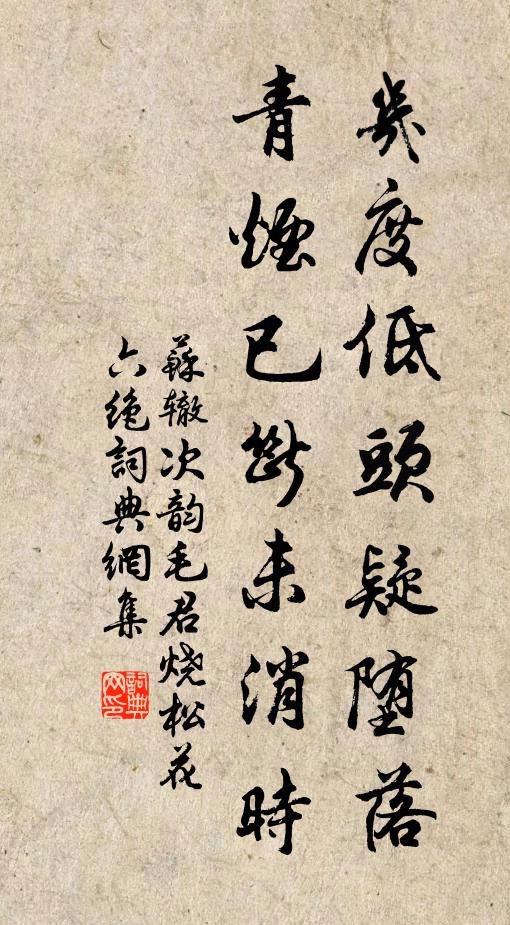 幾度低頭疑墮落
青煙已斷未消時
蘇辙次韵毛君烧松花
六绝詞典網集
詞典網印